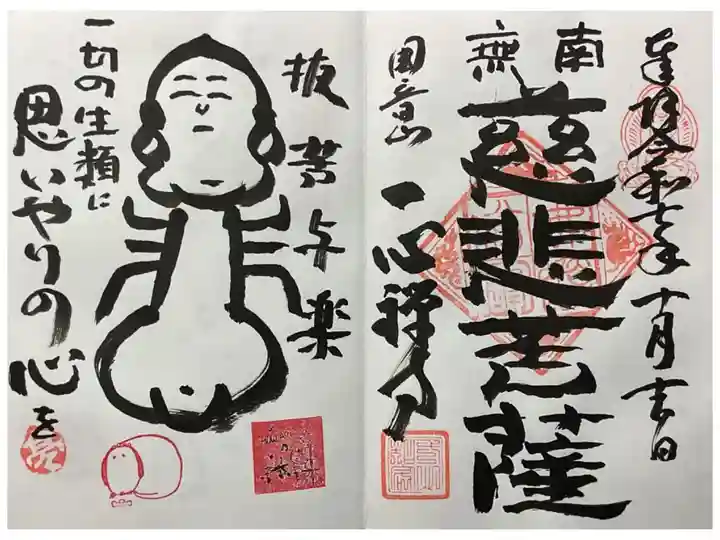 奉拝令和七年十月吉日
南無
慈悲菩薩
円音山
一心禅寺
抜苦与楽
一切の生類に
思いやりの心を